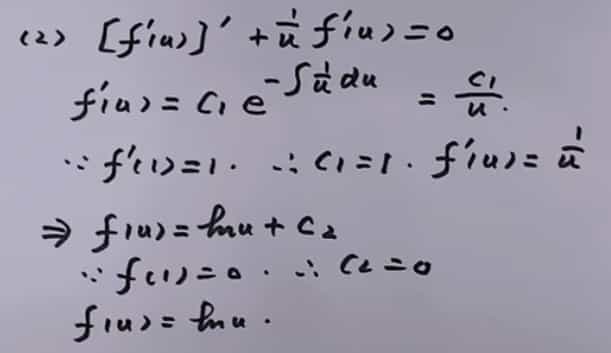 (2) [f'(u)]' + 1/u f'(u) = 0
f'(u) = C₁ e^(-∫ 1/u du) = C₁/u.
∵ f'(1) = 1. ∴ C₁ = 1. f'(u) = 1/u
⇒ f(u) = ln u + C₂
∵ f(1) = 0. ∴ C₂ = 0
f(u) = ln u.